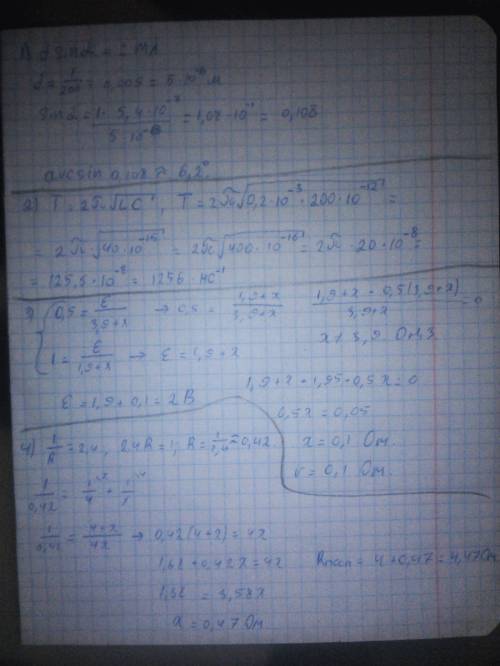 1) d sin α = ± mλ
d = 1/200 = 0,005 = 5·10⁻⁶ м
sin α = 1·5,4·10⁻⁷ / 5·10⁻⁶ = 1,08·10⁻¹ = 0,108
arcsin 0,108 ≈ 6,2°
2) T = 2π√LC, T = 2π√0,2·10⁻³·200·10⁻¹² =
= 2π·√40·10⁻¹⁵ = 2π√400·10⁻¹⁶ = 2π·20·10⁻⁸ =
= 125,5·10⁻⁸ = 1256·нс⁻¹
3) 0,5 = ε/3,9+x → 0,5 = 1,9+x/3,9+x
1,9+x - 0,5(3,9+x)/3,9+x = 0
1 = ε/1,9+x → ε = 1,9+x
x ≠ 3,9
1,9+x-1,95-0,5x=0
ε = 1,9+0,1 = 2 В
0,5x = 0,05
x = 0,1 Ом.
r = 0,1 Ом.
4) 1/R = 2,4, 2,4R = 1; R = 1/2,4 = 0,42
1/0,42 = 1/4 + 1/x
1/0,42 = 4+x/4x → 0,42(4+x) = 4x
1,68 + 0,42x = 4x
1,68 = 3,58x
x = 0,47 Ом
Rпосл = 4+0,47 = 4,47 Ом